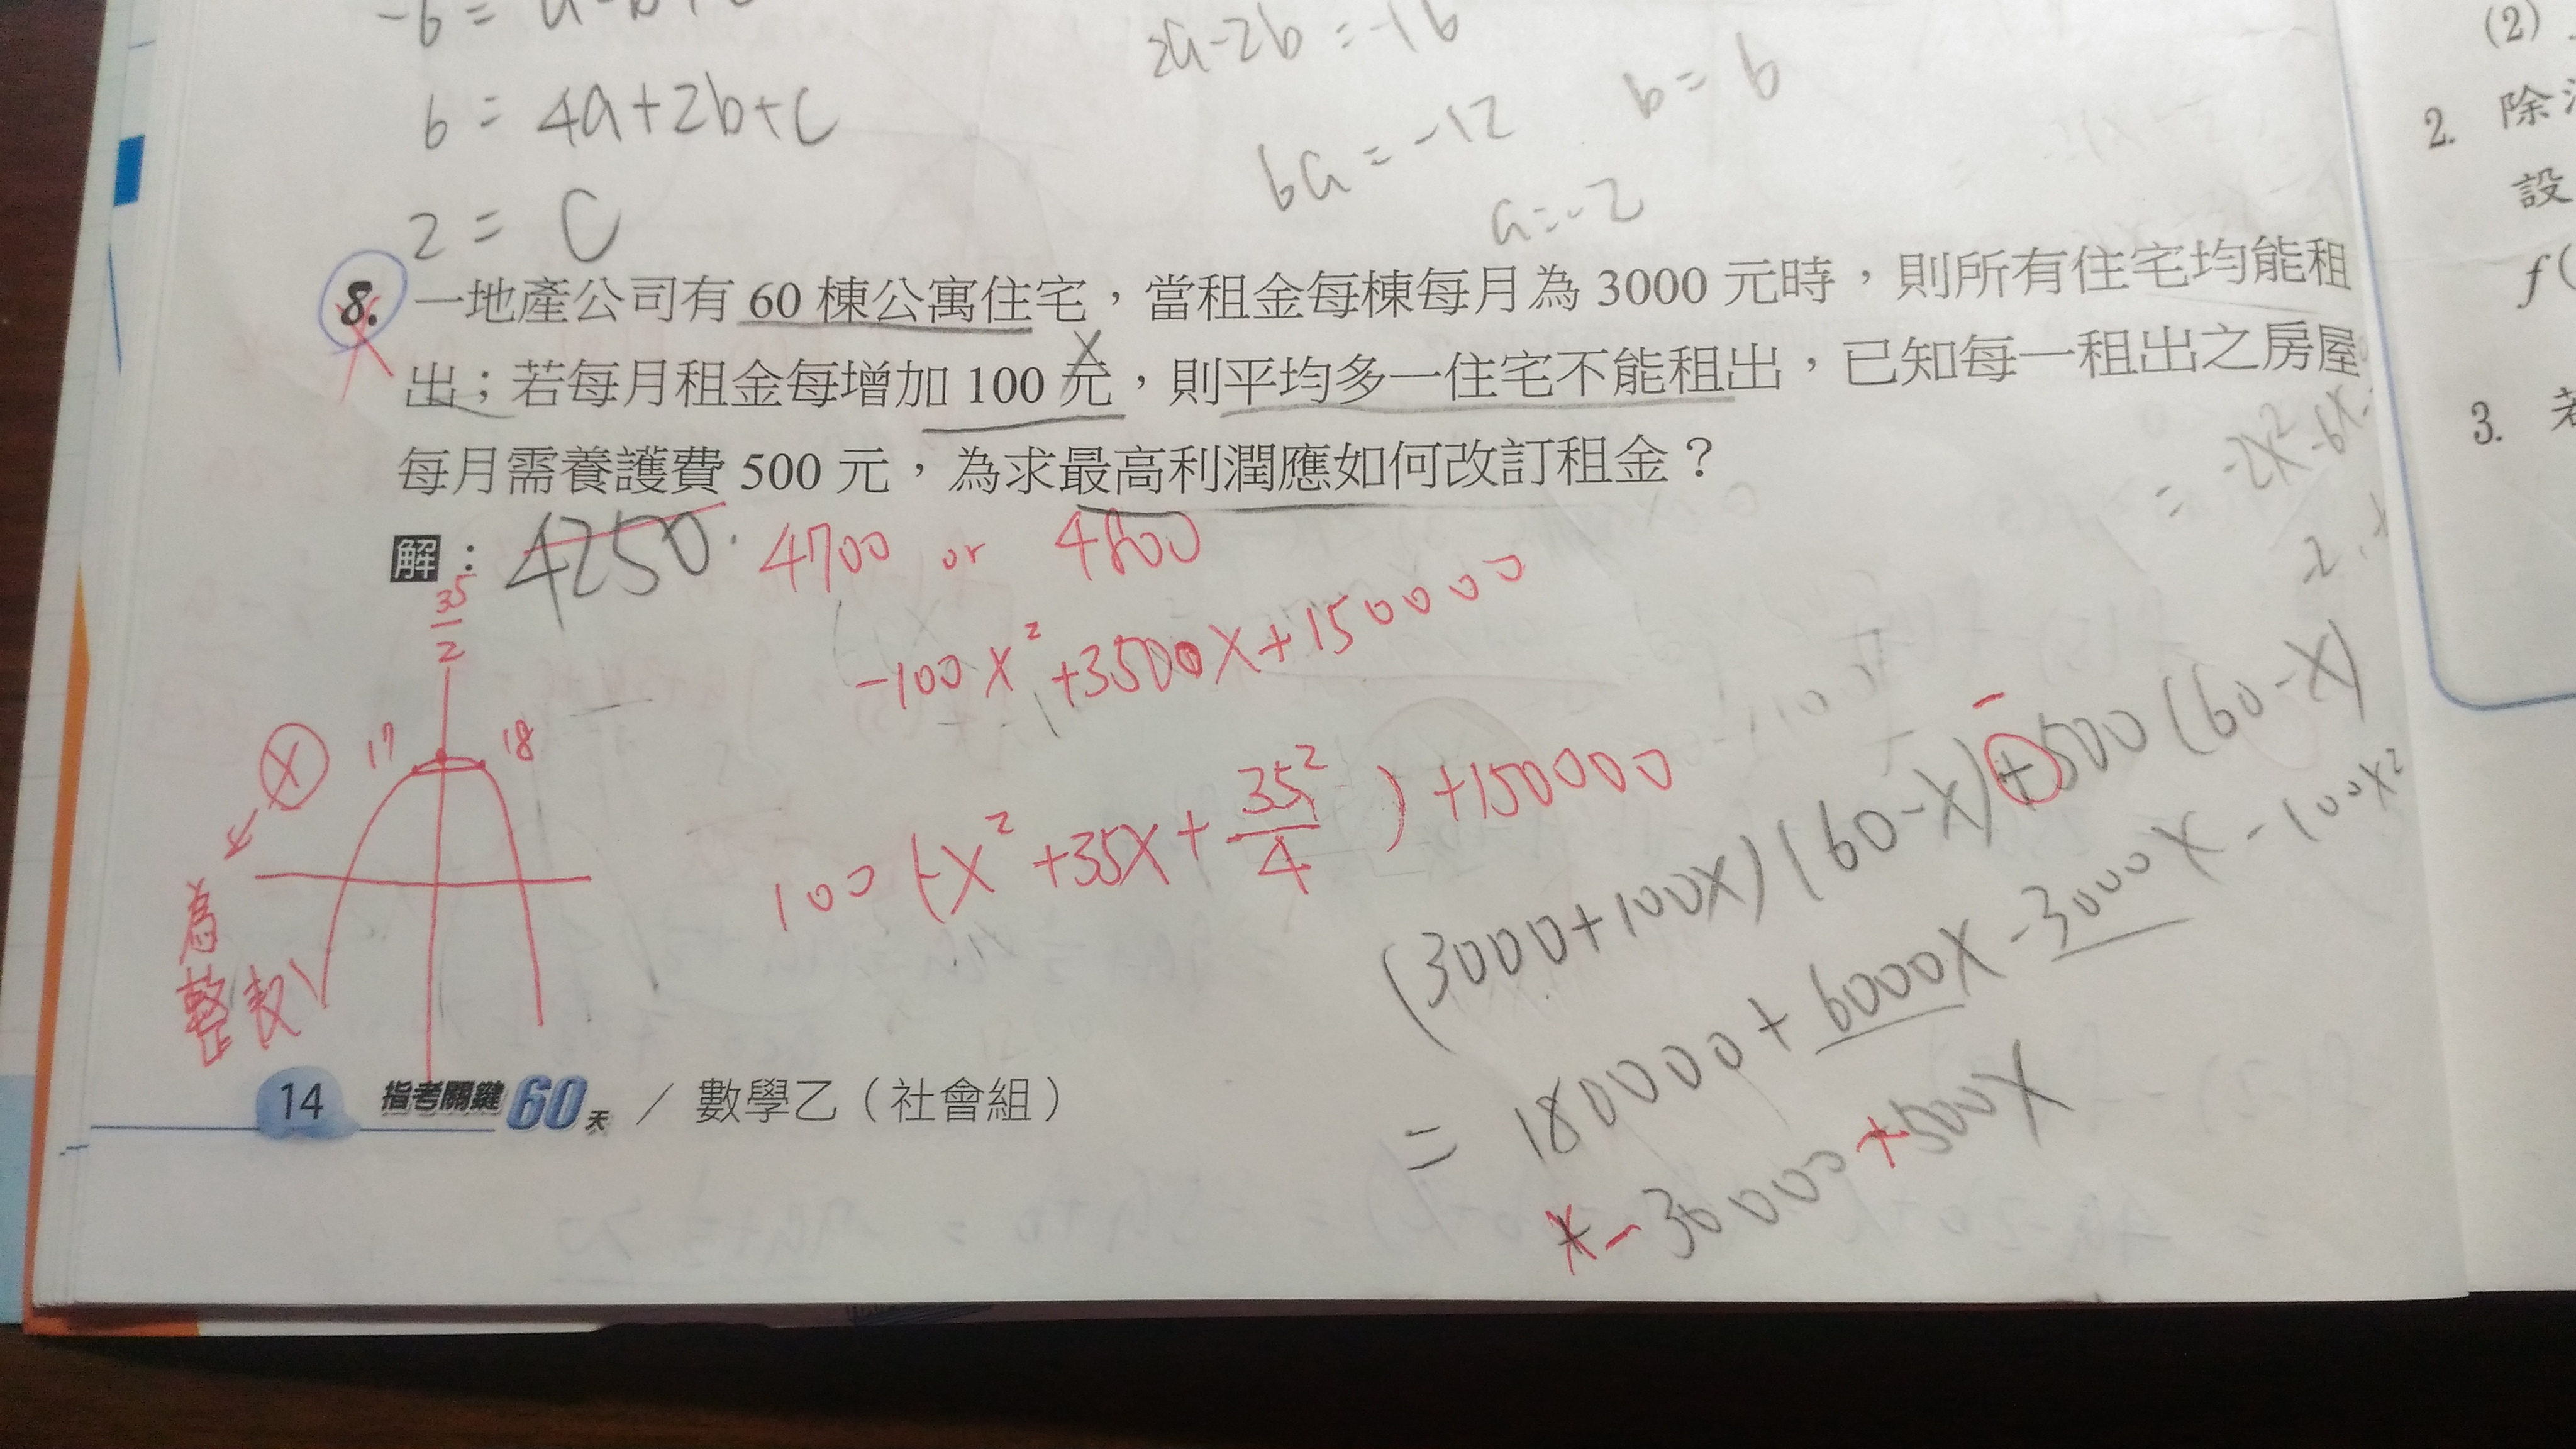 6 = 4a+2b+c
2 = c
2a-2b = -16
6a = -12
b = 6
a=-2
8. 一地產公司有 60 棟公寓住宅，當租金每棟每月為 3000 元時，則所有住宅均能租
出；若每月租金每增加 100 元，則平均多一住宅不能租出，已知每一租出之房屋
x
每月需養護費 500 元，為求最高利潤應如何改訂租金？
解：4250. 4700 or 4800
-100x²+3500x+150000
35/2
17 18
x
為
整數
100(-x²+35x+35²/4)+150000
-
(3000+100x)(60-x)+500(60-x)
= 180000+6000x-3000x-100x²
-30000+500x
14 指考關鍵60天 / 數學乙（社會組）
(2)
2. 除
設
f(
3. 若